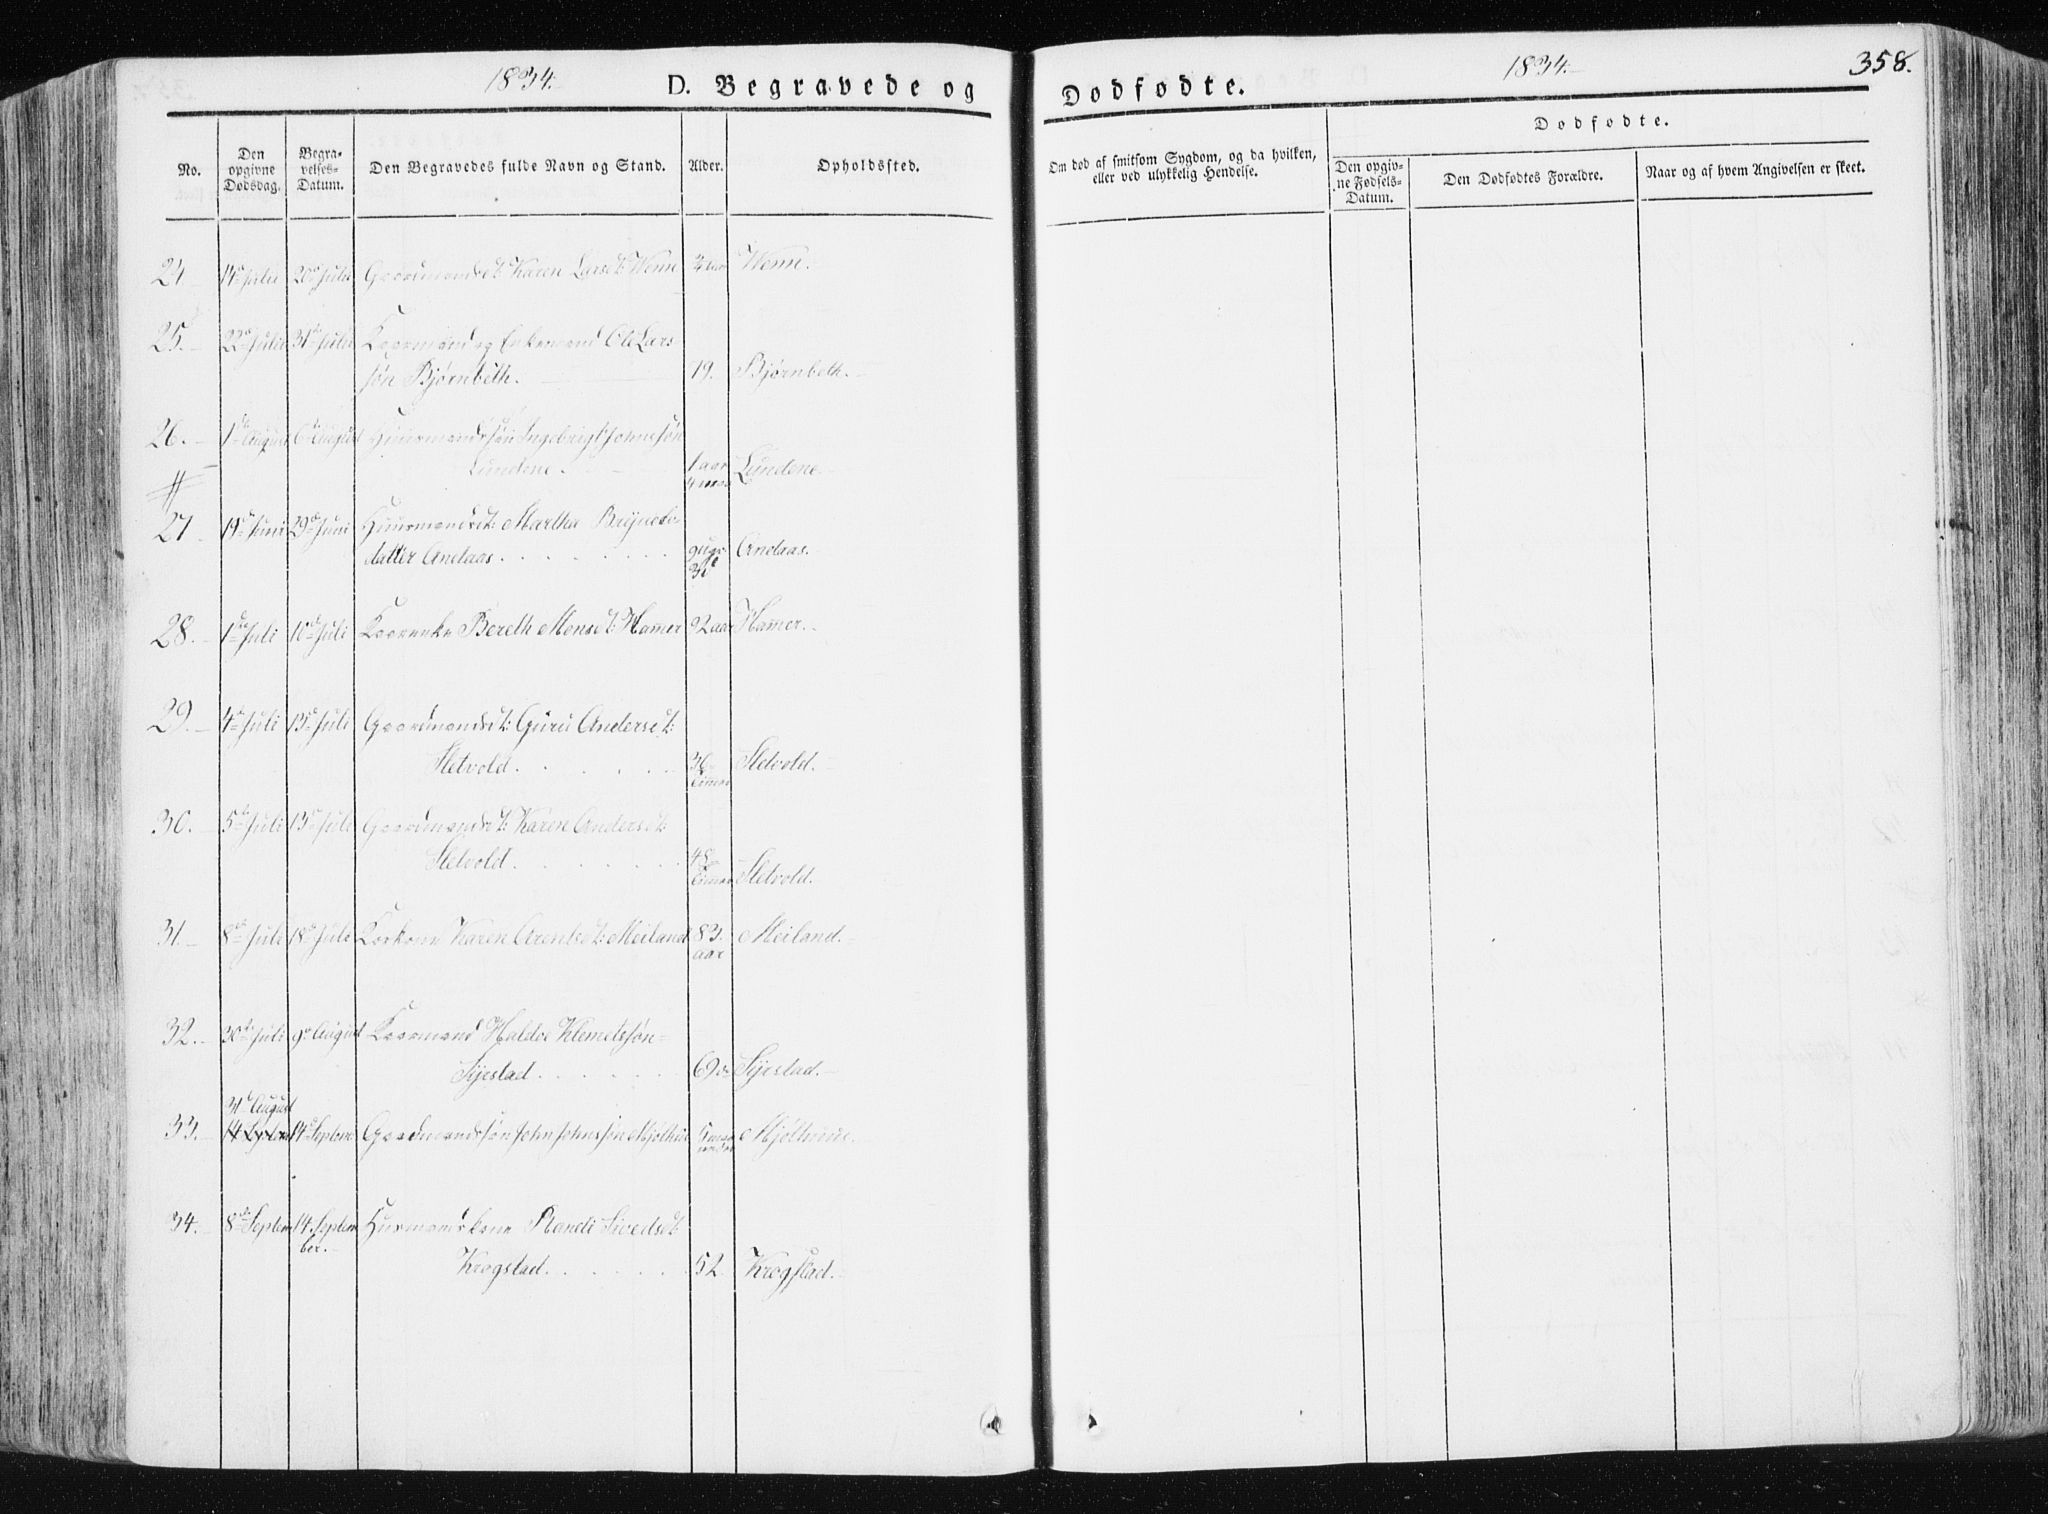 1834.
D. Begravede og
Dødfødte.
1834.
358.
No.
Den opgivne Dødsdag.
Begravelses-Datum.
Den Begravedes fulde Navn og Stand.
Alder.
Opholdssted.
Om død af smitsom Sygdom, og da hvilken, eller ved ulykkelig Hendelse.
Dødfødte.
Den opgivne Fødsels-Datum.
Den Dødfødtes Forældre.
Naar og af hvem Angivelsen er skeet.
24. 14de Juli 20de Juli Gaardmandsdt: Karen Larsdt: Wenn Wenn.
25. 22de Juli 31te Juli Kaarmand og Enkemand Ole Lars
søn Bjørnbeth. 79. Bjørnbeth.
26. 1de August 6de August Huusmandssøn Ingebrigt Johnssøn
Lundene. 1 aar 4 Lundene
27. 19de Juni 29de Juni Huusmandsdt: Martha
datter Aneaas. Aneaas.
28. 1de Juli 10de Juli Kaarenke Bereth Monsdt: Hamer 92 aar Hamer.
29. 4de Juli 13de Juli Gaardmandsdt: Guru Andersdt:
Sletvold. Sletvold.
30. 5te Juli 13de Juli Gaardmandsdt: Karen Andersdt:
Sletvold. Sletvold.
31. 8de Juli 18de Juli Karen Arentsdt: Meiland 83. aar Meiland.
32. 30te Juli 9de August Kaarmand Haldoe Klemetssøn
Syrstad. 69 Syrstad.
31te August
33. 14 Septem 14de Septem Gaardmandssøn John Johnssøn Mjølhuus Mjølhuus.
34. 8de Septem 14. Septem
ber. Huusmandskone Randi Sivertsdt:
Krogstad. 52 Krogstad.